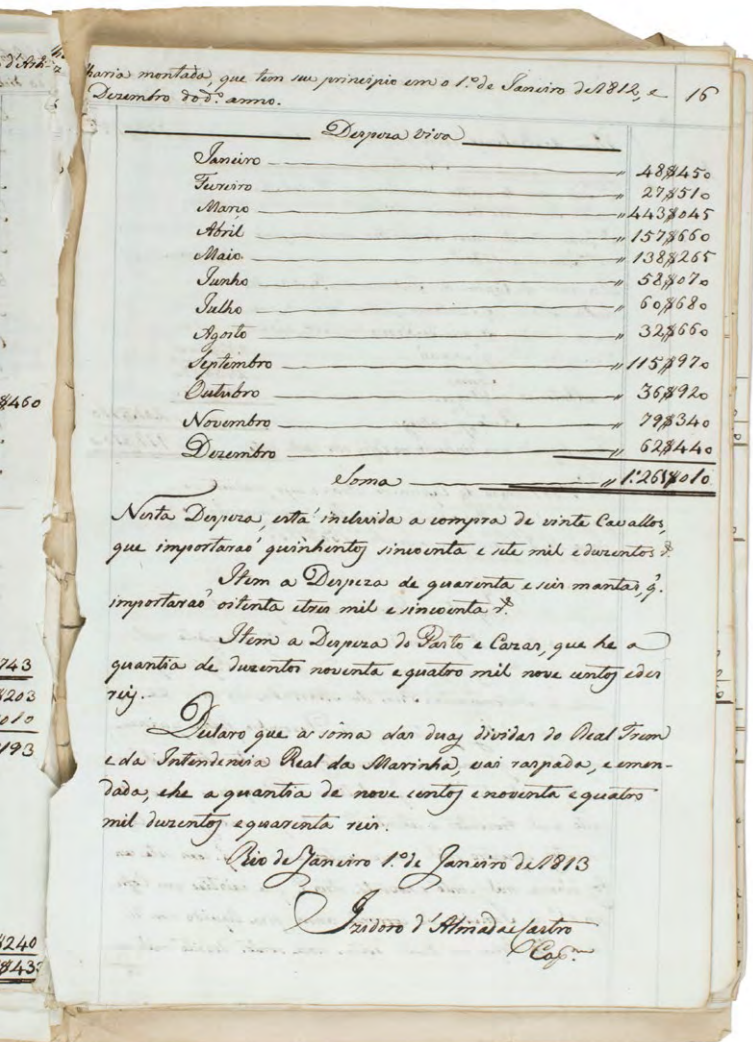 lharia montada, que tem seu principio em o 1.º de Janeiro de 1812, e 16
Dezembro do d.º anno.
Despeza viva
Janeiro " 48$450
Fevreiro " 27$510
Março " 443$045
Abril " 157$660
Maio " 138$265
Junho " 58$070
Julho " 60$680
Agosto " 32$660
Septembro " 115$970
Outubro " 36$920
Novembro " 79$340
Dezembro " 62$440
Soma " 1:261$010
Nesta Despeza, está incluida a compra de vinte Cavallos,
que importaraõ quinhentos sincoenta e sete mil e duzentos r.s
Item a Despeza de quarenta e seis mantas, q.
importaraõ oitenta e tres mil e sincoenta r.s
Item a Despeza do Pasto e Cazas, que he a
quantia de duzentos noventa e quatro mil nove centos e des
reis.
Declaro que a soma das duas dividas do Real Trem
e da Intendencia Real da Marinha, vai raspada, e emen-
dada, e he a quantia de nove centos e noventa e quatro
mil duzentos e quarenta reis.
Rio de Janeiro 1.º de Janeiro de 1813
Izidoro d'Almada e Castro
Cap.m
$460
743
$203
010
193
$240